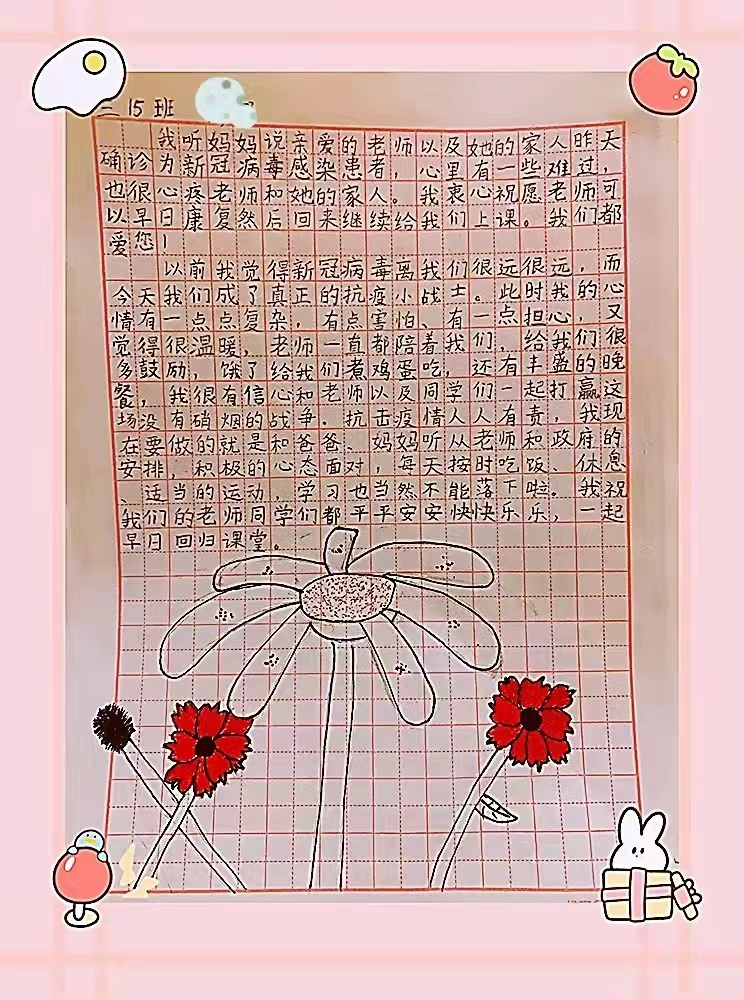 三15班
我听妈妈说亲爱的老师以及她的家人昨天
确诊为新冠病毒感染患者，心里有一些难过，
也很心疼老师和她的家人。我衷心祝愿老师可
以早日康复然后回来继续给我们上课。我们都
爱您！
以前我觉得新冠病毒离我们很远很远，而
今天我们成了真正的抗疫小战士。此时我的心
情有一点点复杂，有点害怕、有一点担心，又
觉得很温暖，老师一直都陪着我们，给我们很
多鼓励，饿了给我们煮鸡蛋吃，还有丰盛的晚
餐，我很有信心和老师以及同学们一起打赢这
场没有硝烟的战争．抗击疫情人人有责，我现
在要做的就是和爸爸、妈妈听从老师和政府的
安排，积极的心态面对，每天按时吃饭、休息
、适当的运动，学习也当然不能落下啦。我祝
我们的老师同学们都平平安安快快乐乐，一起
早日回归课堂。